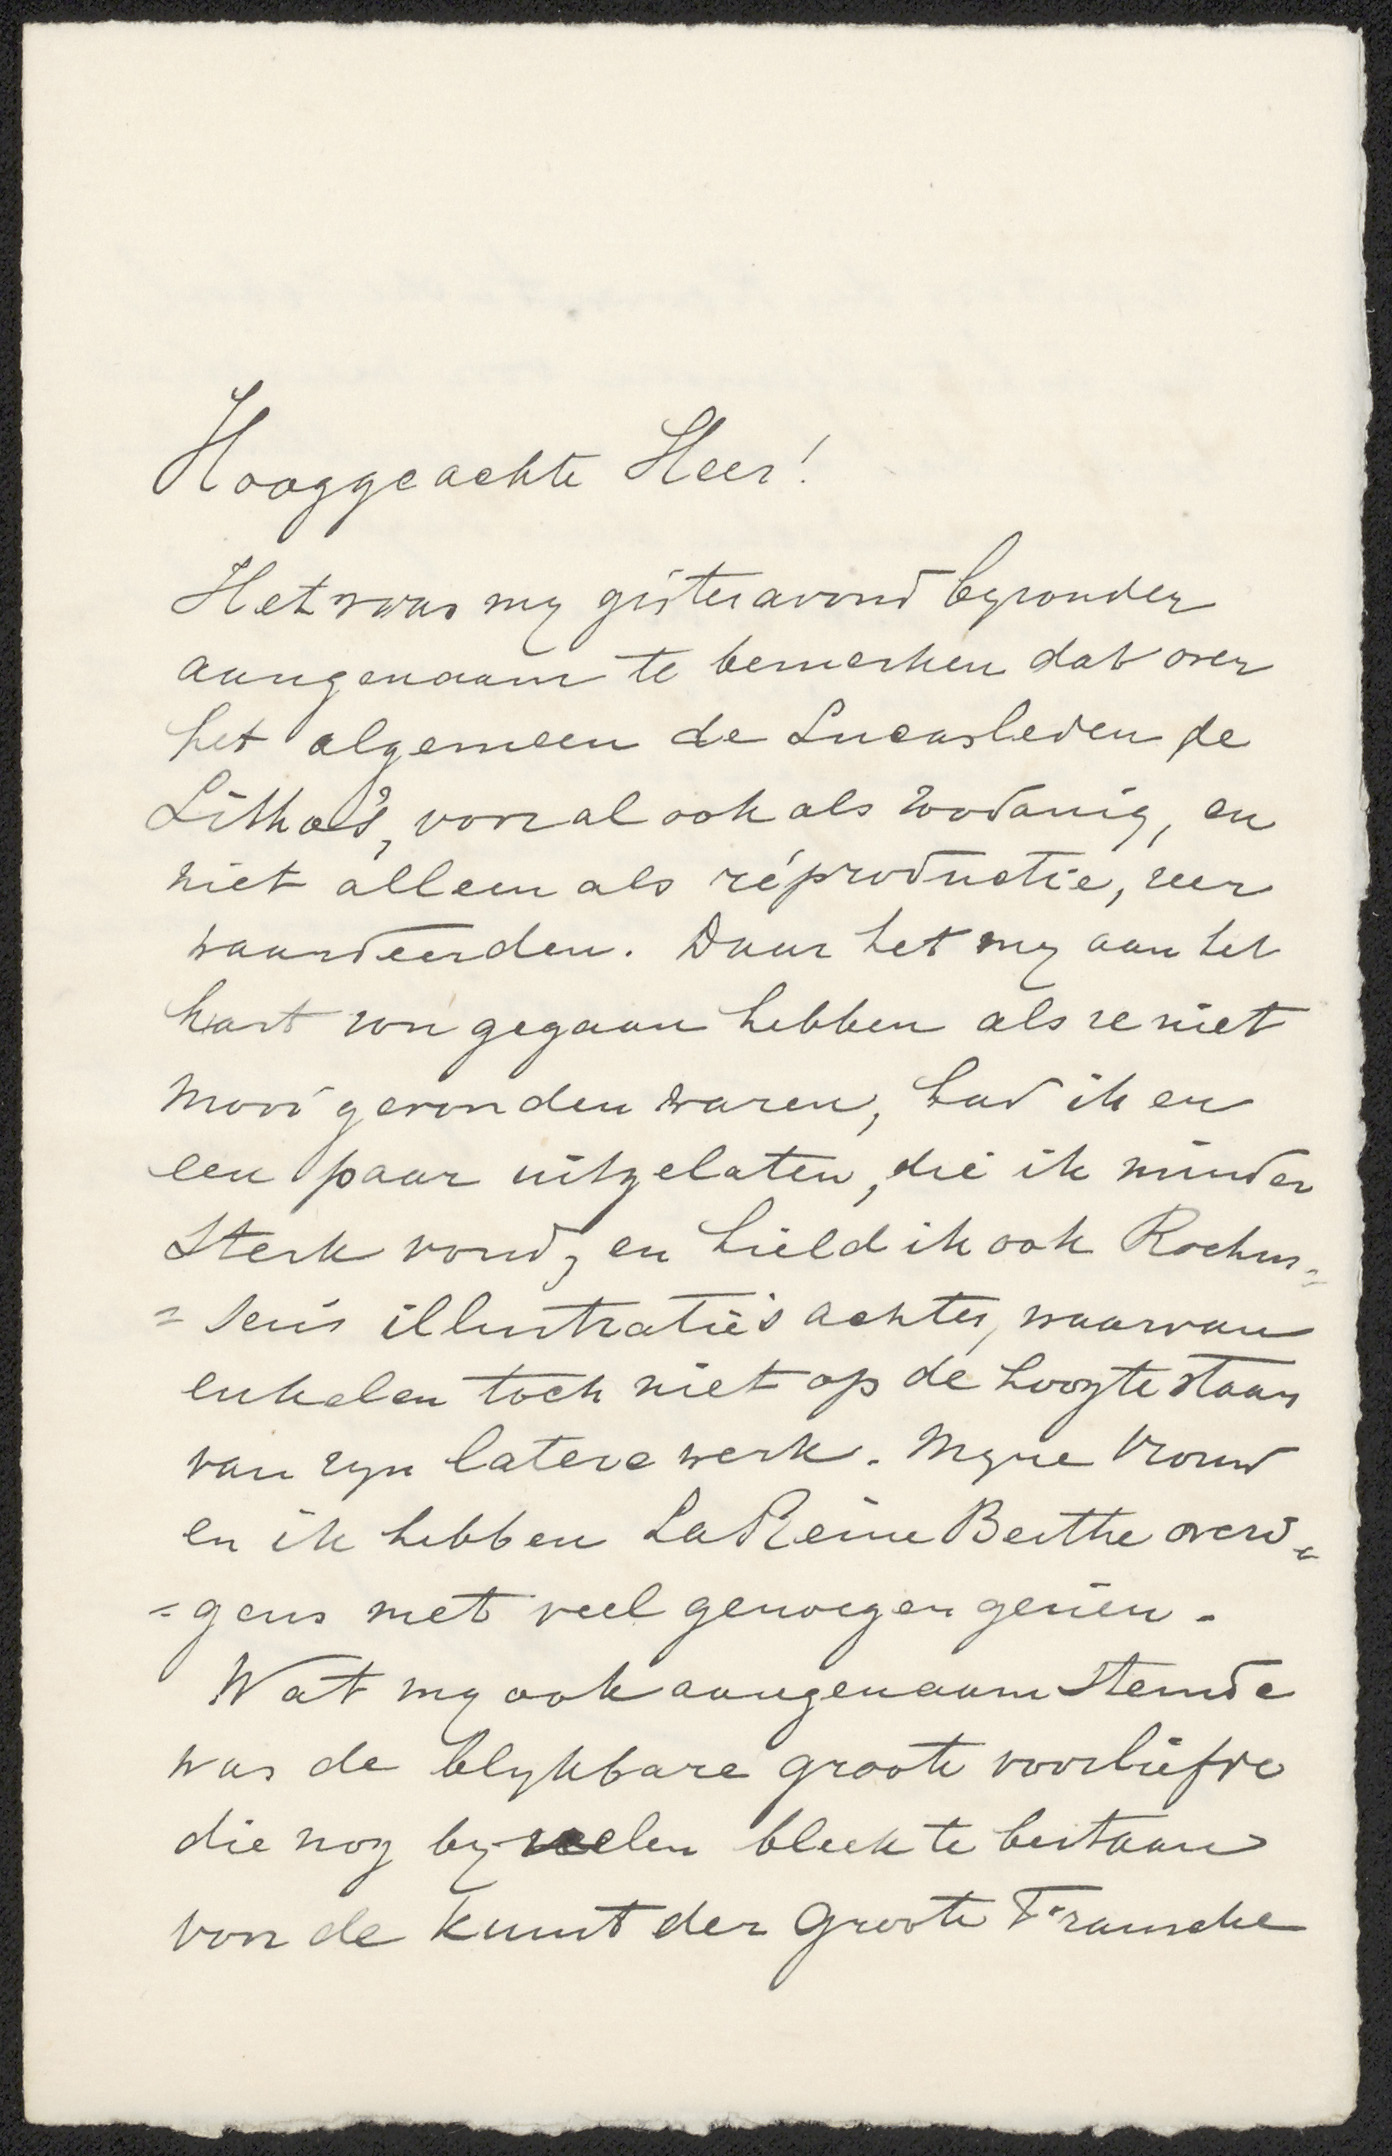 Hooggeachte Heer!
Het was my gisteravond byzonder
aangenaam te bemerken dat over
het algemeen de Lucasleden de
Litho's, vooral ook als zoodanig, en
niet alleen als réproductie, zeer
waardeerden. Daar het my aan het
hart zou gegaan hebben als ze niet
mooi gevonden waren, had ik er
een paar uitgelaten, die ik minder
sterk vond, en hield ik ook Rochus=
=sen's illustratie's achter, waarvan
enkelen toch niet op de hoogte staan
van zyn latere werk. Myne Vrouw
en ik hebben La Reine Berthe overi=
=gens met veel genoegen gezien.
Wat my ook aangenaam stemde
was de blykbare groote voorliefde
die nog by velen bleek te bestaan
voor de kunst der groote Fransche